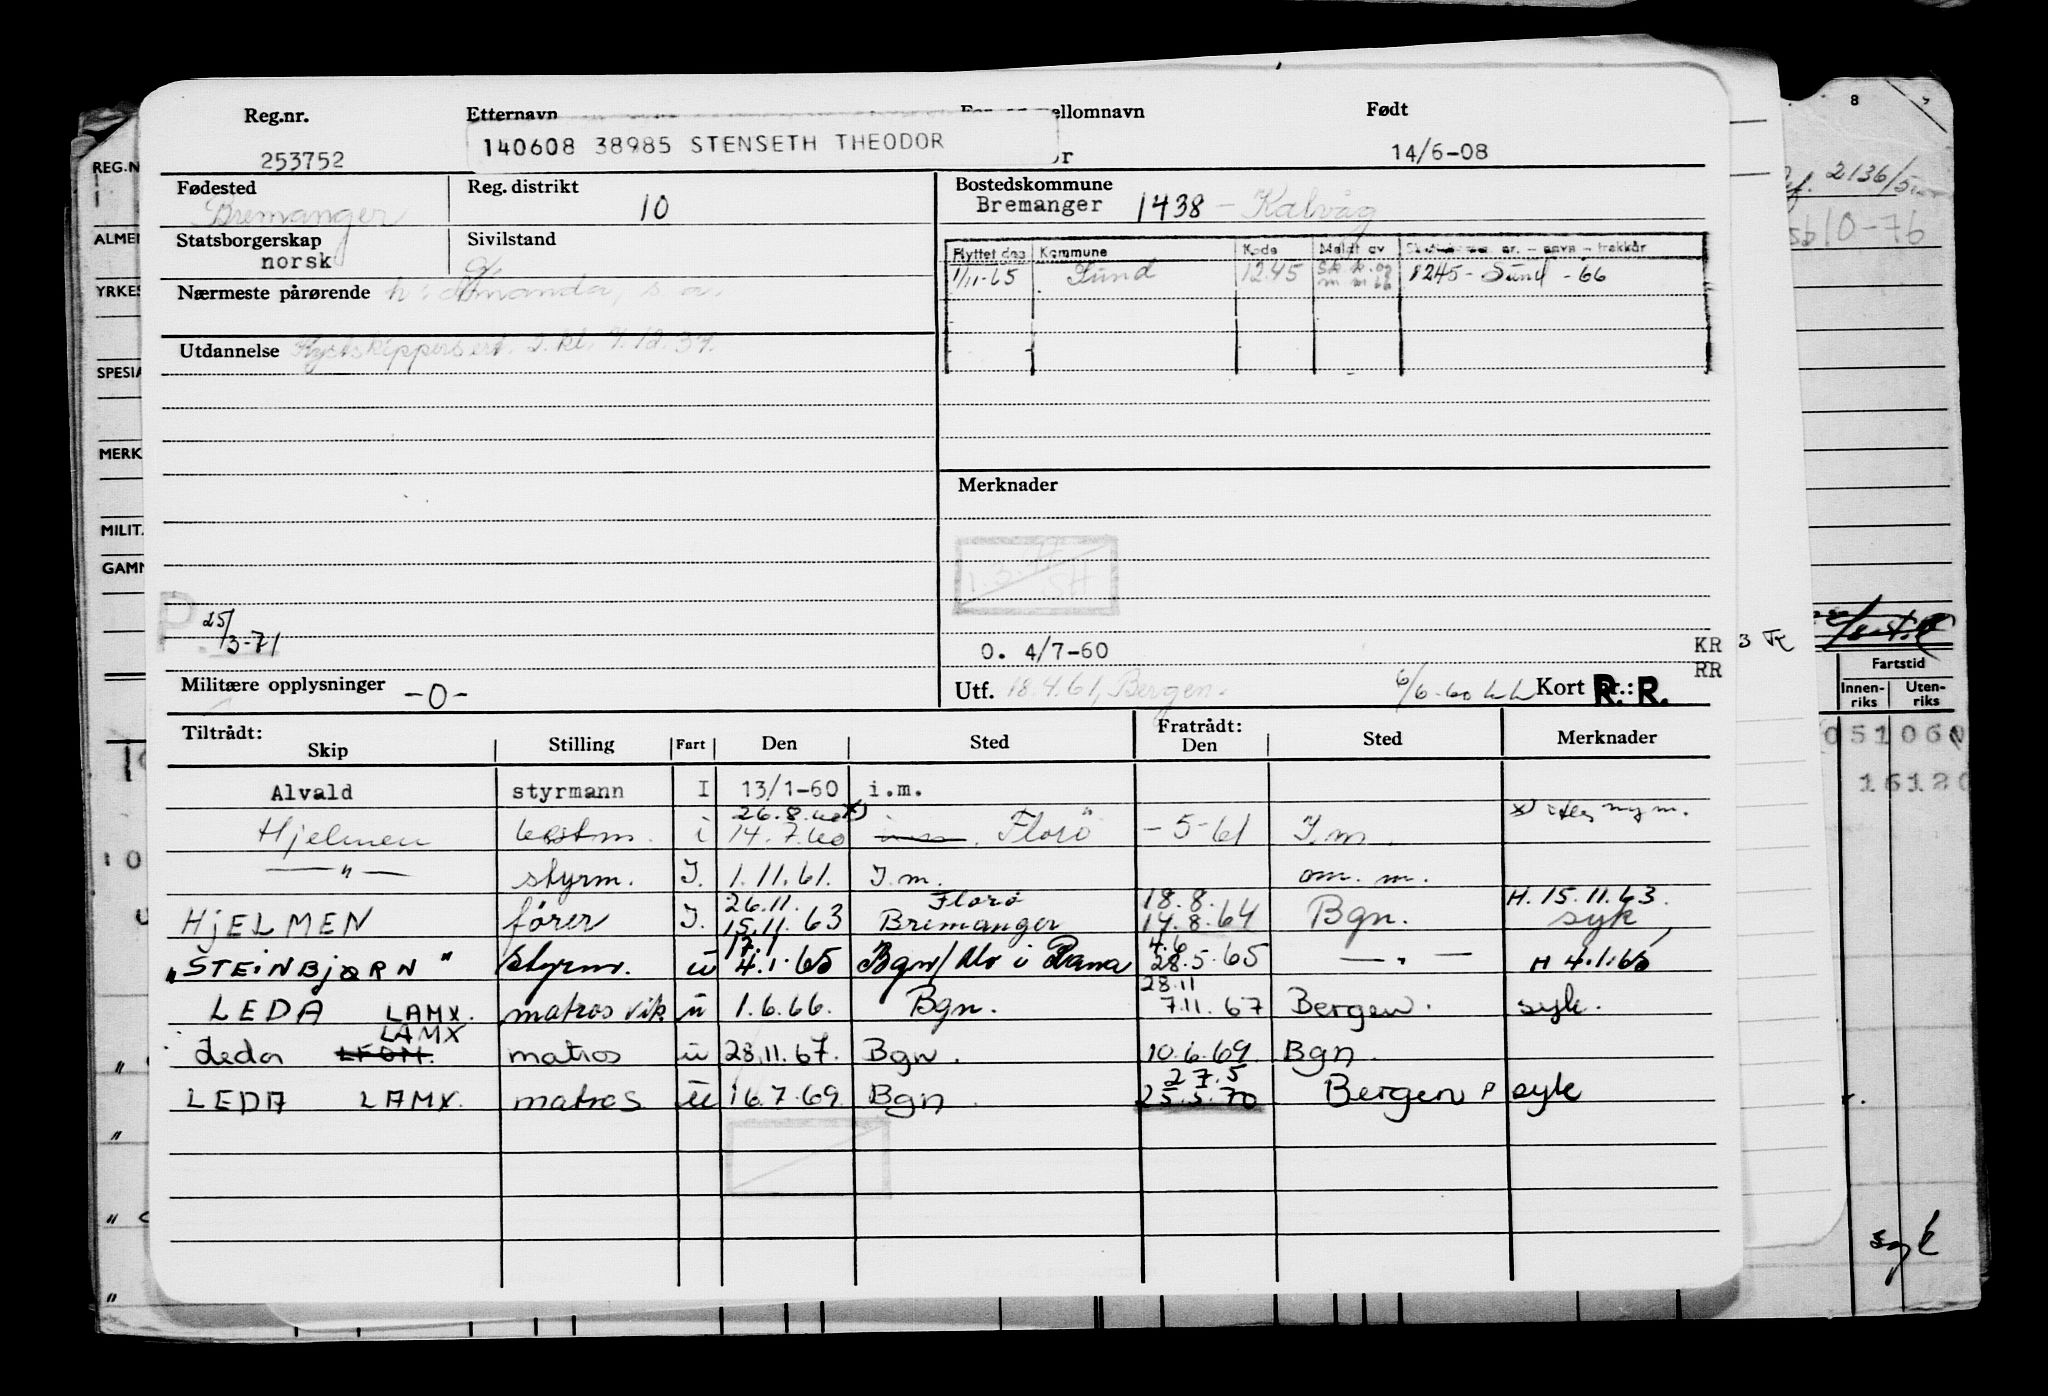 Reg.nr. Etternavn ellomnavn Født
253752 140608 38985 STENSETH THEODOR or 14/6-08
Fødested Reg. distrikt Bostedskommune
Bremanger 10 Bremanger 1438 - Kalvåg
Statsborgerskap Sivilstand
norsk g.
Flyttet dag Kommune Kode Meldt av
1/11-65 Sund 1245 1245 - Sund - 66
Nærmeste pårørende h: Amanda, s.a.
Utdannelse Kystskippersert. 2. kl. 7.12.37.
Merknader
25/3-71
O. 4/7-60 KR 3
RR
Militære opplysninger -0- Utf. 18.4.61, Bergen. 6/6-60 Kort nr.: R. R.
Tiltrådt: Fratrådt:
Skip Stilling Fart Den Sted Den Sted Merknader
Alvald styrmann I 13/1-60 i.m.
26.8.60 x)
Hjelmen bestm. i 14.7.60 i.m. Florö -5-61 I.m. x)
—"— styrm. I. 1.11.61. I.m. om. m.
26.11. Florö 18.8. H. 15.11.63.
HJELMEN fører I. 15.11.63 Bremanger 14.8.64 Bgn. syk
17.1 4.6
"STEINBJØRN" Styrm. u 4.1.65 Bgn/Mo i Rana 28.5.65 —"— H 4.1.65
28.11
LEDA LAMX. matros vik u 1.6.66. Bgn. 7.11.67 Bergen. syk.
LAMX
Leda LFOM. matros u 28.11.67. Bgn. 10.6.69. Bgn.
27.5
LEDA LAMX. matros u 16.7.69. Bgn. 25.5.70 Bergen P syk
REG.N
ALMEN
YRKES
SPESIA
MERK
MILIT.
GAMN
8
2136/5
10-76
Fartstid
Innen-riks Uten-riks
051060
16120
syk